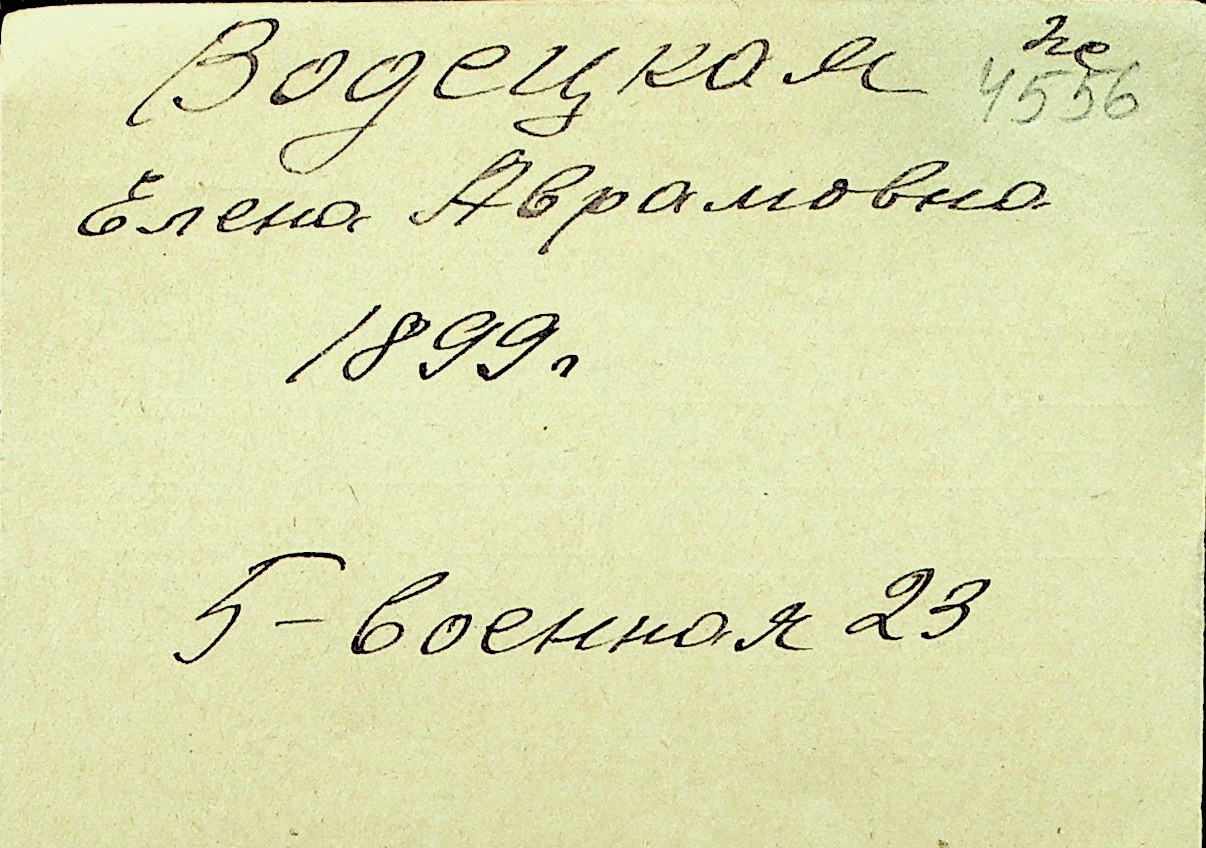 Водецкая не
4556
Елена Аврамовна
1899г
5-военная 23